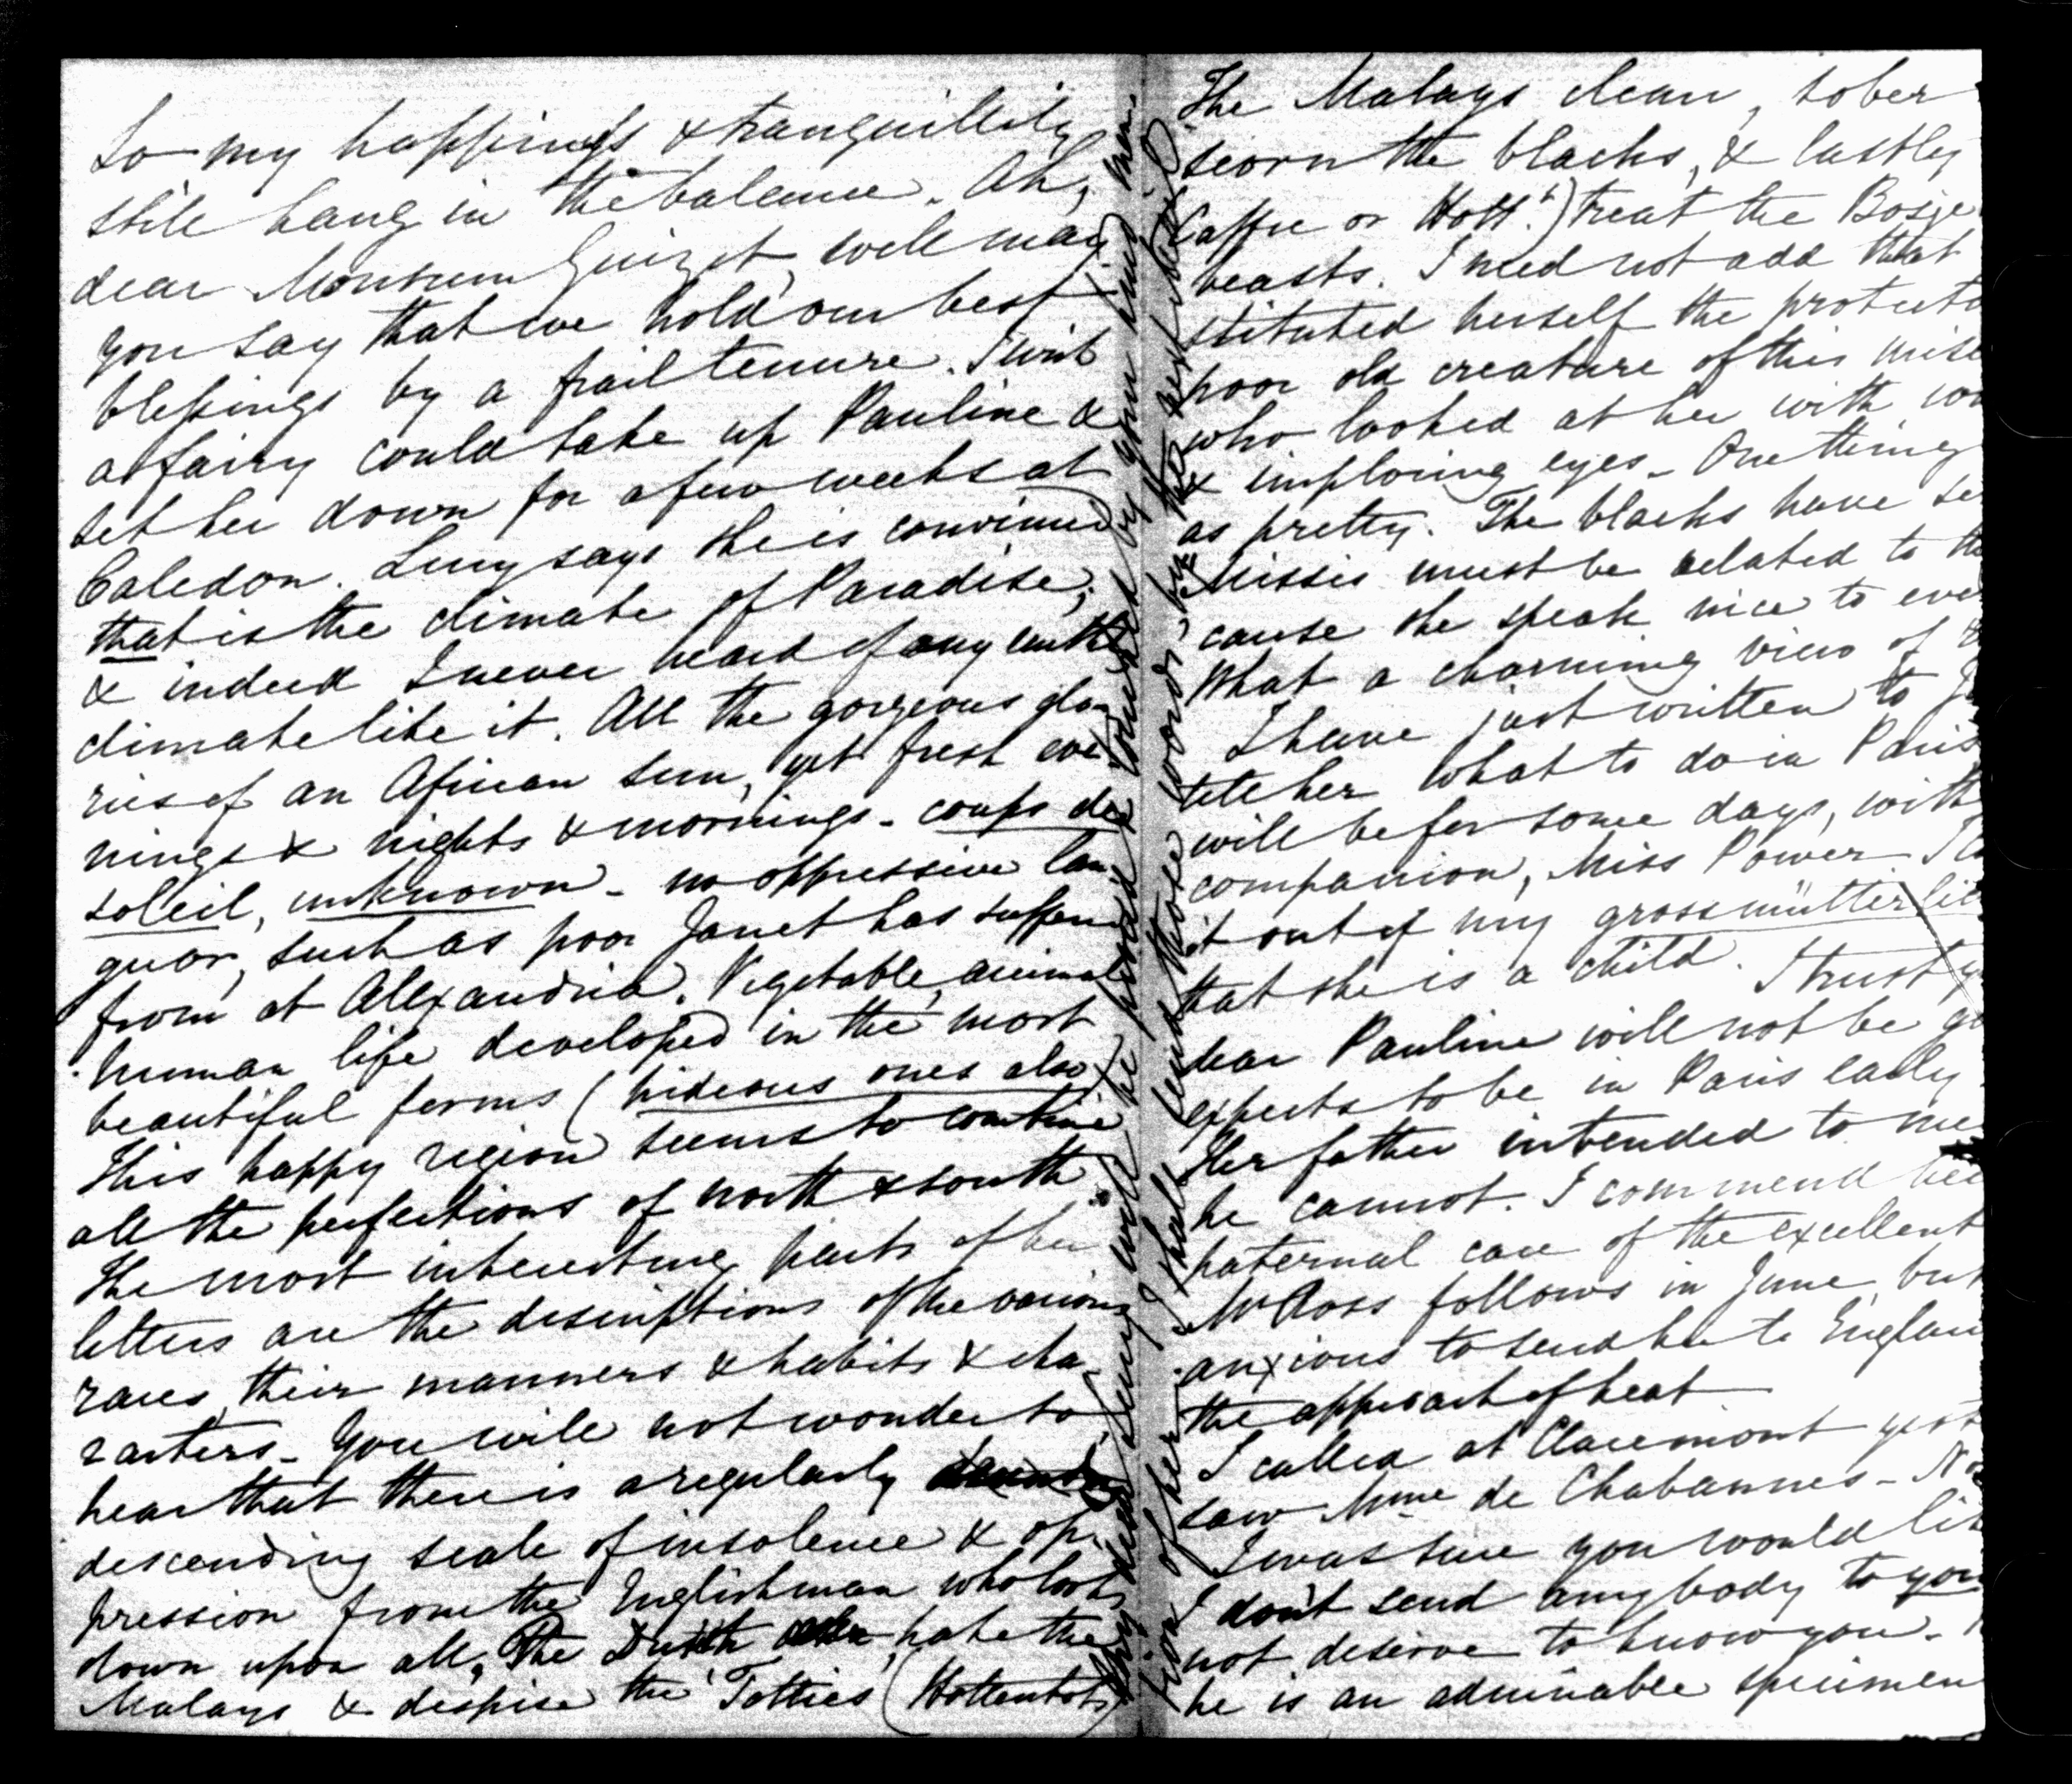 So my happiness & tranquillity
still hang in the balance. Ah,
dear Monsieur Guizot, well may
you say that we hold our best
blessings by a frail tenure. I wish
a fairy could take up Pauline &
set her down for a few weeks at
Caledon. Lucy says she is convinced
that is the climate of Paradise;
& indeed I never heard of any earthly
climate like it. All the gorgeous glo-
ries of an African sun, yet fresh eve-
nings & nights & mornings - coups de
soleil, unknown - no oppressive lan-
guor, such as poor Janet has suffered
from at Alexandria. Vegetable, animal
human life developed in the most
beautiful forms (hideous ones also)
This happy region seems to combine
all the perfections of north & south.
The most interesting parts of her
letters are the descriptions of the various
races, their manners & habits & cha-
racters - You will not wonder to
hear that there is a regularly
descending scale of insolence & op-
pression from the Englishman who looks
down upon all, The Dutch hate the
Malays & despise the Totties (Hottentots)
The Malays clean, sober
scorn the blacks, & lastly
Caffre or Hott.t) treat the Bosje
beasts. I need not add that
stituted herself the protect
poor old creature of this mise
who looked at her with
& imploring eyes - One thing
as pretty. The blacks have
Missis must be related to the
cause she speak nice to eve
What a charming view of
I have just written to
tell her what to do in Paris
will be for some days, with
companion, Miss Power - I
it out of my grossmütterlic
that she is a child. I trust
dear Pauline will not be
expects to be in Paris early
Her father intended to me
he cannot. I commend her
paternal care of the excellent
Mr Ross follows in June, but
anxious to send her to England
the approach of heat
I called at Claremont yest
saw Mme de Chabannes - No
I was sure you would lik
I don't send anybody to you
not deserve to know you -
he is an admirable specimen